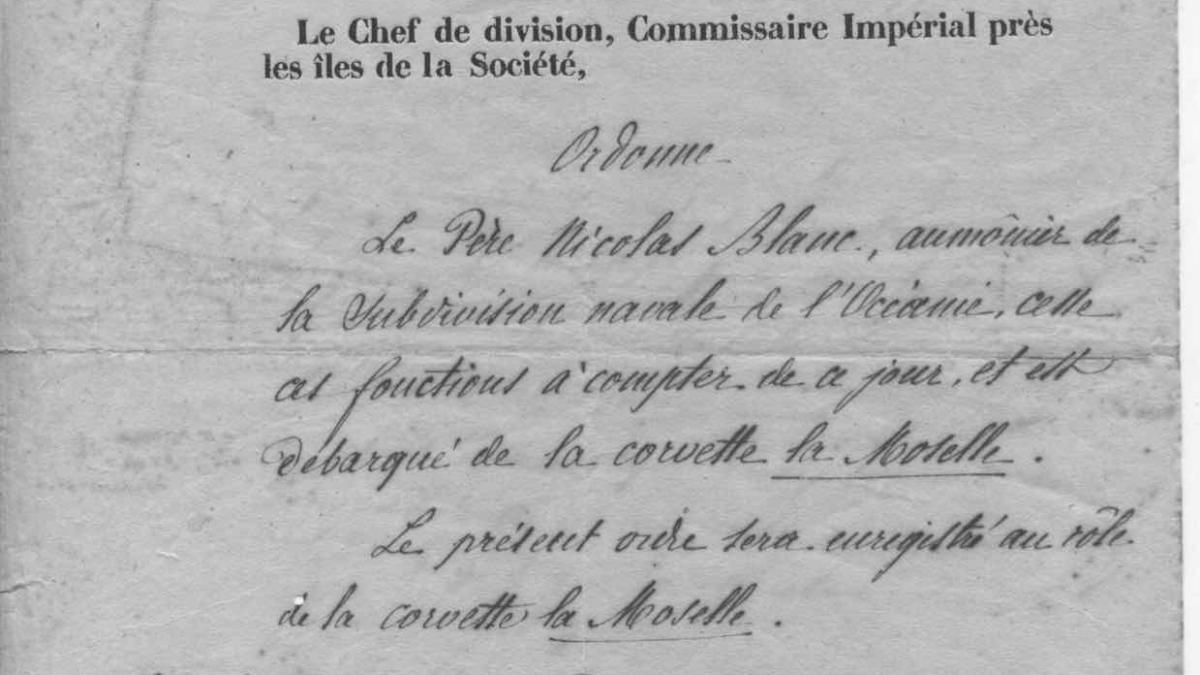 Le Chef de division, Commissaire Impérial près
les îles de la Société,
Ordonne
Le Père Nicolas Blanc, aumônier de
la Subdivision navale de l'Océanie, cesse
ces fonctions à compter de ce jour, et est
débarqué de la corvette la Moselle.
Le présent ordre sera enregistré au rôle
de la corvette la Moselle.